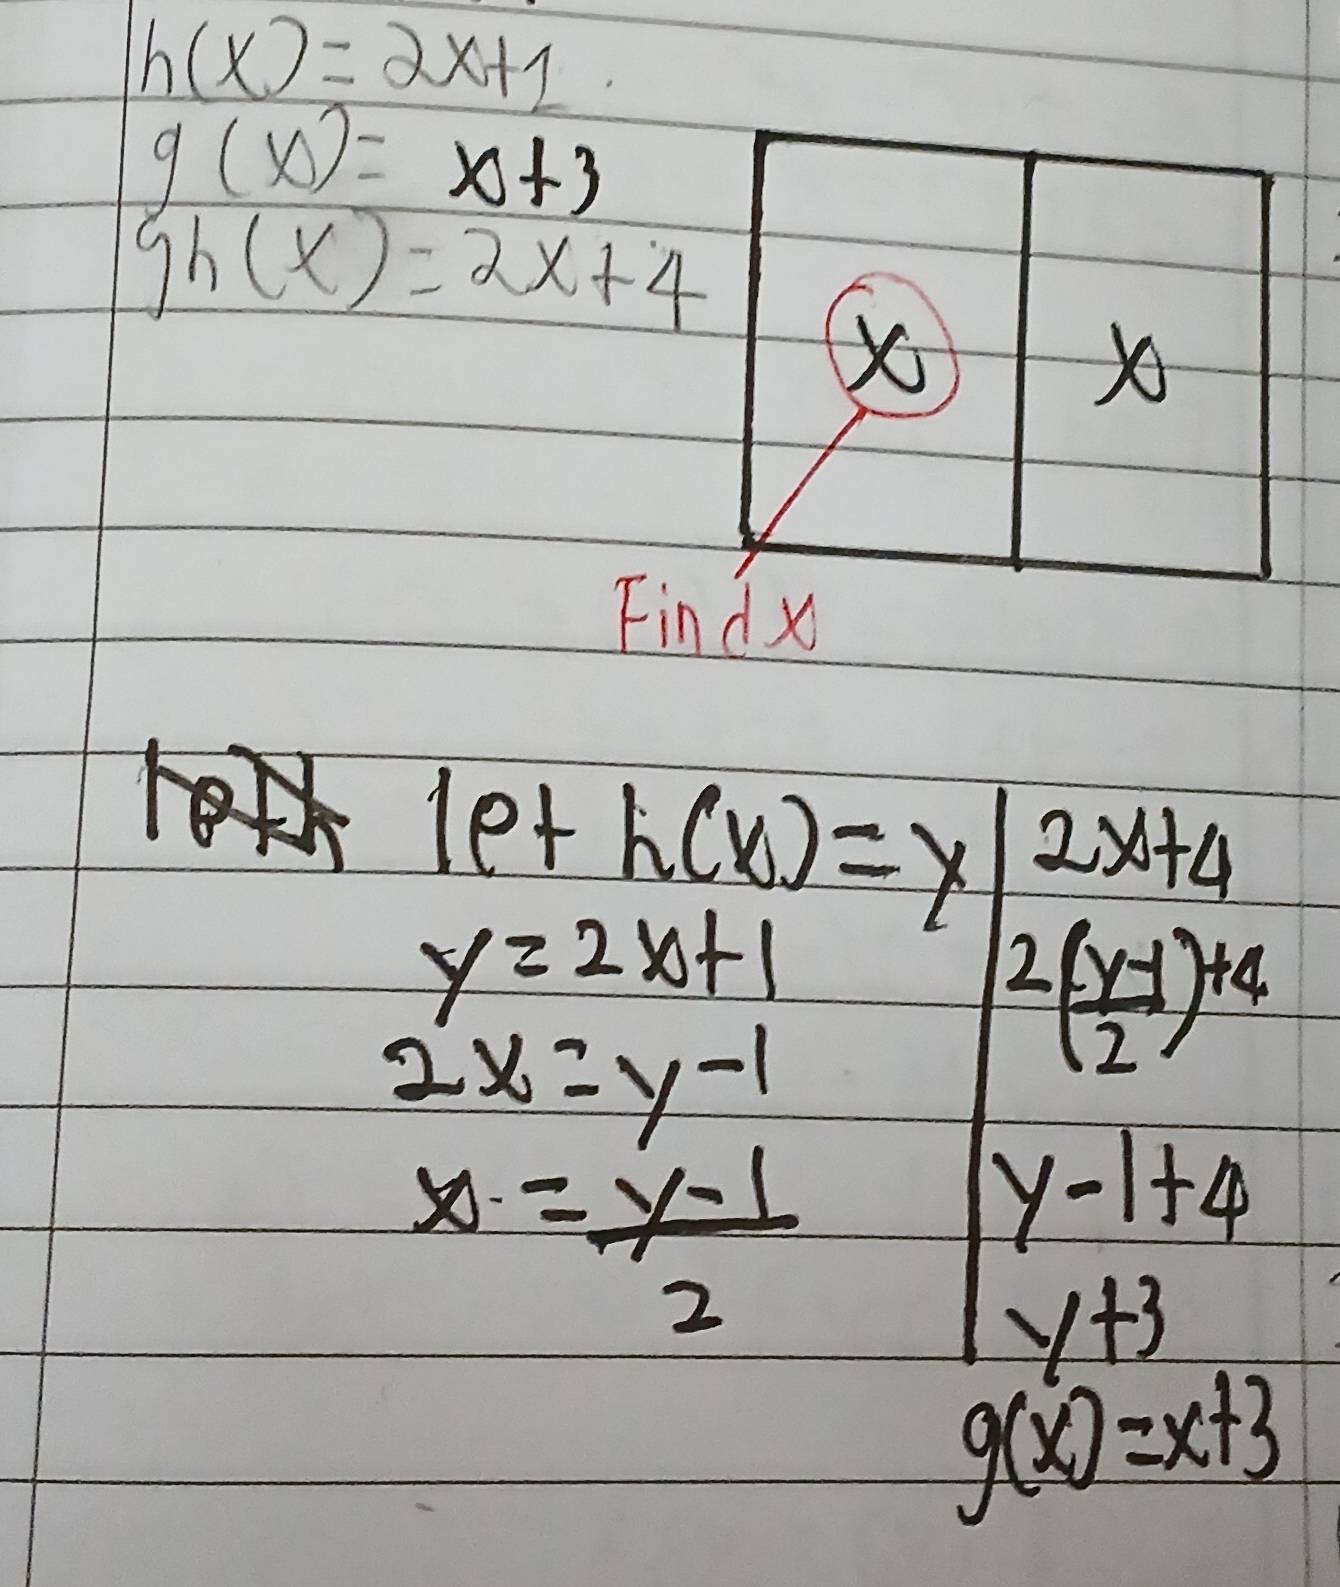 h(x) = 2x+1
g(x) = x+3
gh(x) = 2x+4
x x
Find x
let h(x) = y
y = 2x+1
2x = y-1
x = y-1
2
2x+4
2(y-1)+4
2
y-1+4
y+3
g(x) = x+3